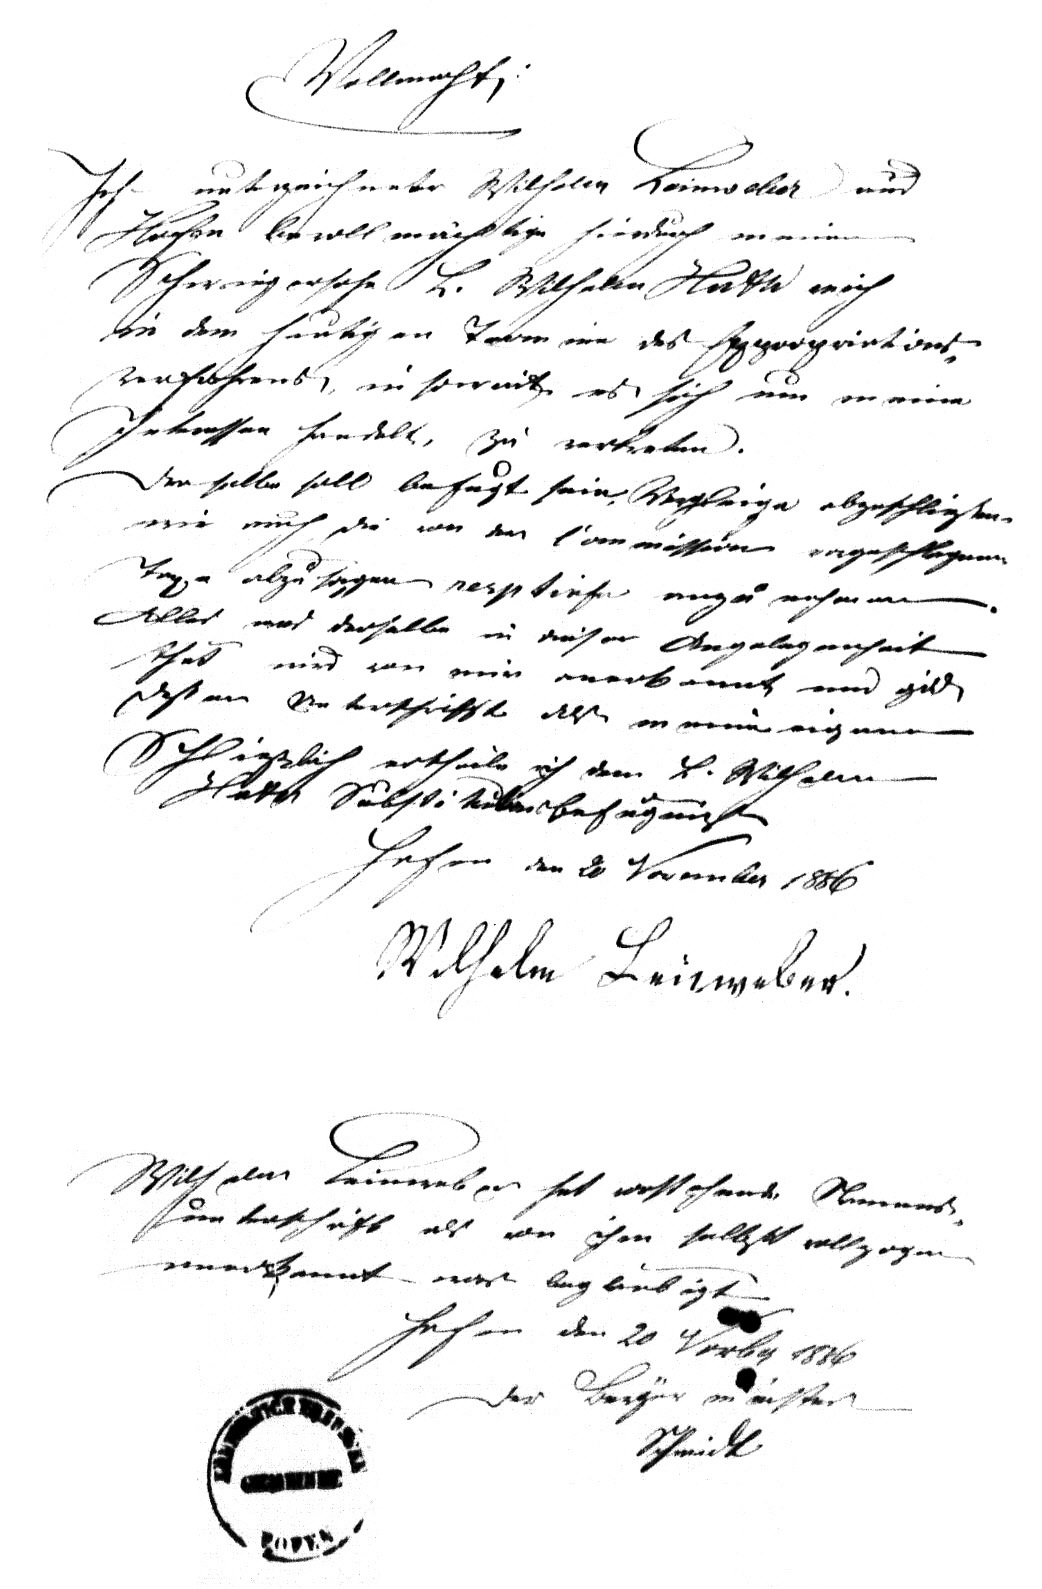 Vollmacht;
Ich unterzeichneter Wilhelm Leinweber aus
bevollmächtige hierdurch meinen
Schwiegersohn L. Wilhelm mich
in dem heutigen Termine des Expropriations-
verfahrens, in soweit es sich um meine
Interessen handelt, zu vertreten.
Derselbe soll befugt sein, Vergleiche abzuschließen
wie auch die von der Commission vorgeschlagene
Taxe anzunehmen
Alles was derselbe in dieser Angelegenheit
thut wird von mir anerkannt und gilt
dessen Unterschrift als meine eigene
Schließlich ertheile ich dem L. Wilhelm
Substitutionsbefugniß
den 20 November 1886
Wilhelm Leinweber.
Wilhelm Leinweber hat vorstehende Namens-
unterschrift als von ihm selbst vollzogen
anerkannt was beglaubigt
den 20 Novbr 1886
Der Bürgermeister
Schmidt
GEMEINDE